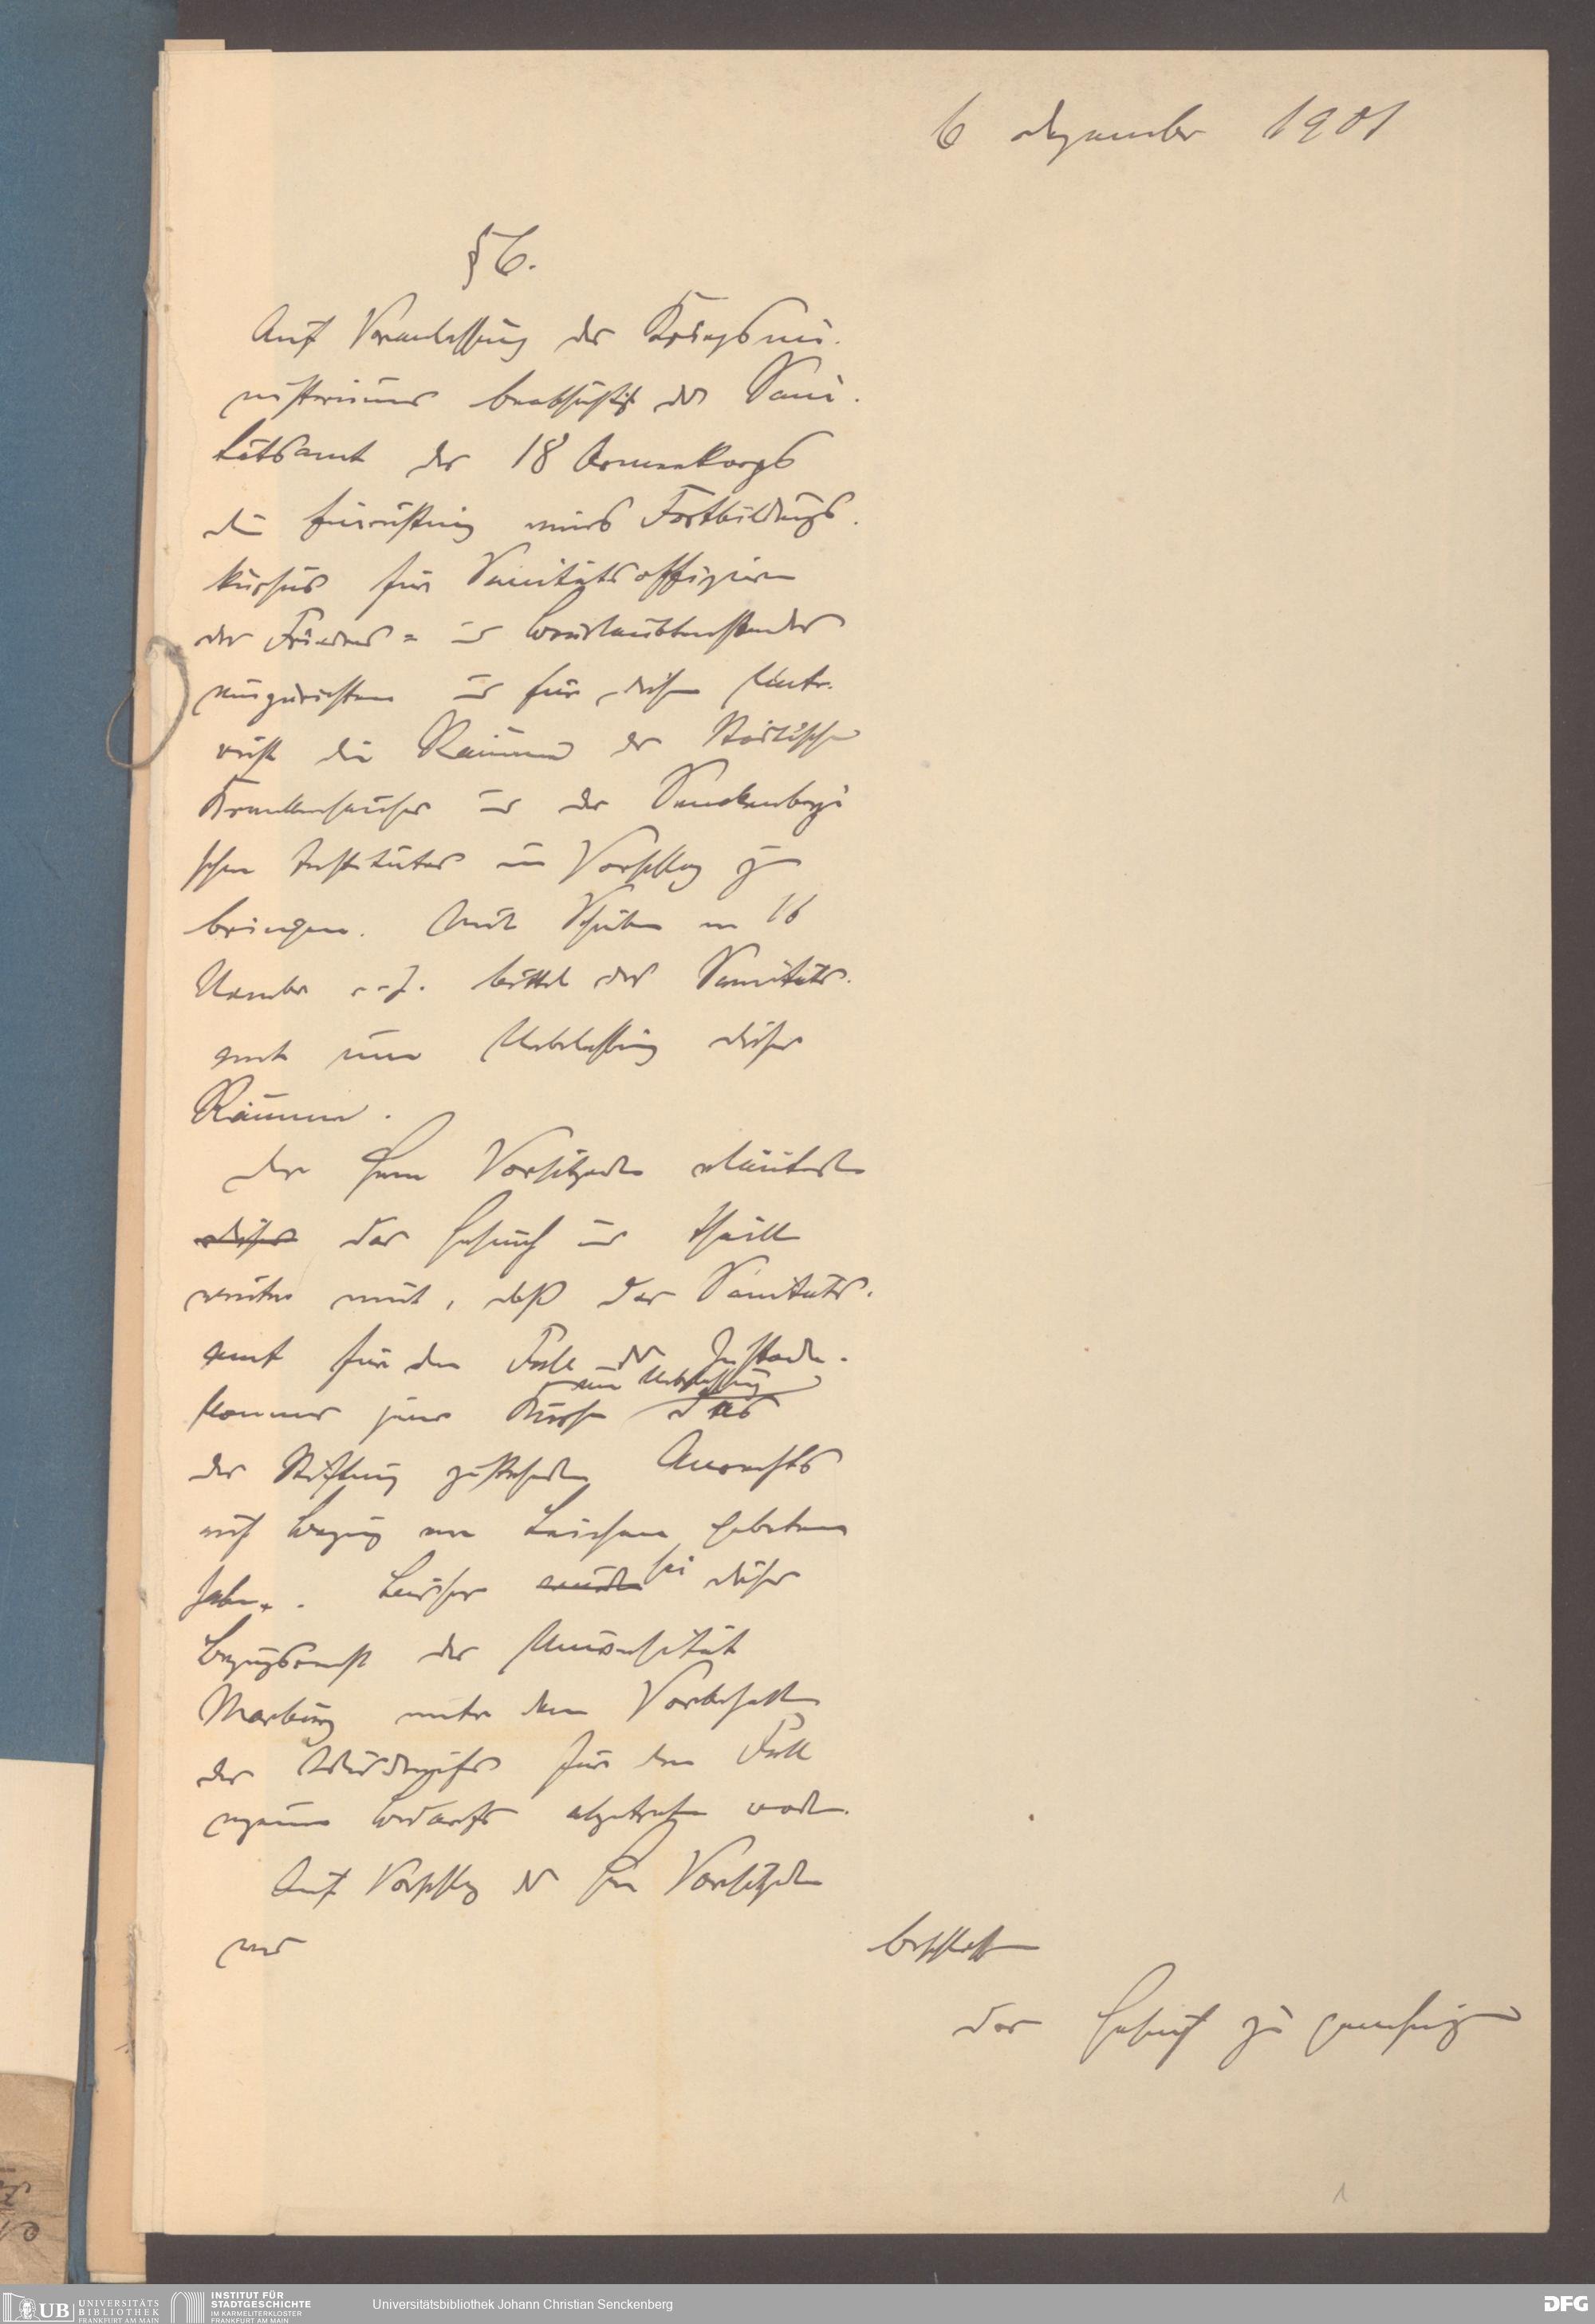 6 Dezember 1901
§ 6.
Auf Veranlassung des Kriegsmi-
nisteriums beabsichtigt das Sani-
tätsamt des 18 Armeekorps
die Einrichtung eines Fortbildungs-
kursus für Sanitätsoffiziere
des Friedens= u Beurlaubtenstandes
einzurichten u für diesen Unter-
richt die Räume des Städtischen
Krankenhauses u des Senckenbergi
schen Institutes in Vorschlag zu
bringen. Mit Schreiben vom 16
November bittet das Sanitäts-
amt um Ueberlassung dieser
Räume.
Der Herr Vorsitzende erläuterte
dieses das Gesuch u theilte
weiter mit, daß das Sanitäts-
amt für den Fall des Zustande-
um Ueberlassung
kommens jenes Kurses des
der Stiftung zustehenden Anrechts
auf Bezug von Leichen gebeten
habe. Leider wurde sei dieses
Bezugsrecht der Universität
Marburg unter dem Vorbehalt
des Widerrufs für den Fall
eigenen Bedarfs abgetreten worden.
Auf Vorschlag des Herrn Vorsitzenden
wird
beschlossen
das Gesuch zu genehmigen
1
UB UNIVERSITÄTS
BIBLIOTHEK
FRANKFURT AM MAIN
INSTITUT FÜR
STADTGESCHICHTE
IM KARMELITERKLOSTER
FRANKFURT AM MAIN
Universitätsbibliothek Johann Christian Senckenberg
DFG